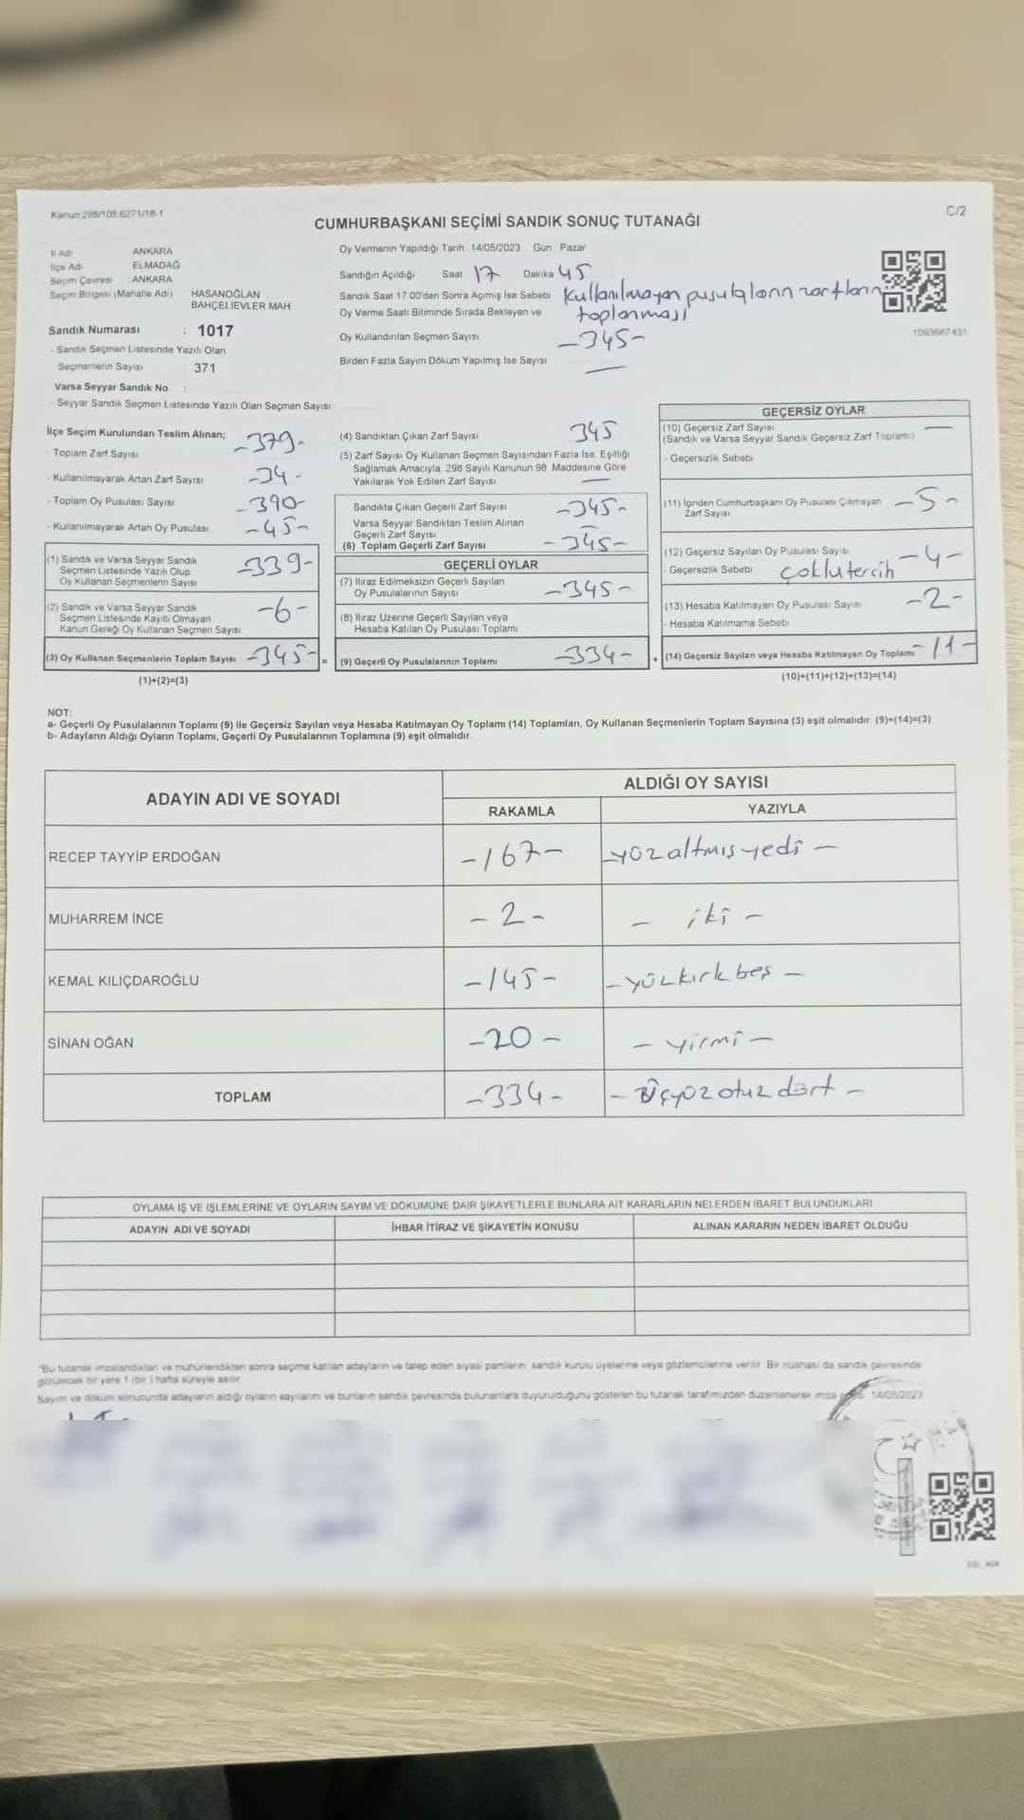 Kanun:298/105.6271/18-1
C/2
CUMHURBAŞKANI SEÇİMİ SANDIK SONUÇ TUTANAĞI
İl Adı ANKARA
İlçe Adı ELMADAĞ
Seçim Çevresi : ANKARA
Seçim Bölgesi (Mahalle Adı) HASANOĞLAN
BAHÇELİEVLER MAH
Sandık Numarası : 1017
- Sandık Seçmen Listesinde Yazılı Olan
Seçmenlerin Sayısı 371
Varsa Seyyar Sandık No :
- Seyyar Sandık Seçmen Listesinde Yazılı Olan Seçmen Sayısı
Oy Vermenin Yapıldığı Tarih 14/05/2023 Gün : Pazar
Sandığın Açıldığı Saat 17 Dakika 45
Sandık Saat 17.00'den Sonra Açımış İse Sebebi Kullanılmayan pusulaların zarfların
Oy Verme Saati Bitiminde Sırada Bekleyen ve toplanması
Oy Kullandırılan Seçmen Sayısı -345-
Birden Fazla Sayım Döküm Yapılmış İse Sayısı —
İlçe Seçim Kurulundan Teslim Alınan;
Toplam Zarf Sayısı -379-
- Kullanılmayarak Artan Zarf Sayısı -34-
- Toplam Oy Pusulası Sayısı -390-
- Kullanılmayarak Artan Oy Pusulası -45-
(1) Sandık ve Varsa Seyyar Sandık
Seçmen Listesinde Yazılı Olup
Oy Kullanan Seçmenlerin Sayısı -339-
(2) Sandık ve Varsa Seyyar Sandık
Seçmen Listesinde Kayıtlı Olmayan
Kanun Gereği Oy Kullanan Seçmen Sayısı -6-
(3) Oy Kullanan Seçmenlerin Toplam Sayısı -345- =
(1)+(2)=(3)
(4) Sandıktan Çıkan Zarf Sayısı 345
(5) Zarf Sayısı Oy Kullanan Seçmen Sayısından Fazla İse, Eşitliği
Sağlamak Amacıyla, 298 Sayılı Kanunun 98. Maddesine Göre
Yakılarak Yok Edilen Zarf Sayısı —
Sandıkta Çıkan Geçerli Zarf Sayısı -345-
Varsa Seyyar Sandıktan Teslim Alınan
Geçerli Zarf Sayısı —
(6) Toplam Geçerli Zarf Sayısı -345-
GEÇERLİ OYLAR
(7) İtiraz Edilmeksizin Geçerli Sayılan
Oy Pusulalarının Sayısı -345-
(8) İtiraz Üzerine Geçerli Sayılan veya
Hesaba Katılan Oy Pusulası Toplamı
(9) Geçerli Oy Pusulalarının Toplamı -334- +
GEÇERSİZ OYLAR
(10) Geçersiz Zarf Sayısı —
(Sandık ve Varsa Seyyar Sandık Geçersiz Zarf Toplamı)
- Geçersizlik Sebebi
(11) İçinden Cumhurbaşkanı Oy Pusulası Çıkmayan
Zarf Sayısı -5-
(12) Geçersiz Sayılan Oy Pusulası Sayısı -4-
- Geçersizlik Sebebi çoklu tercih
(13) Hesaba Katılmayan Oy Pusulası Sayısı -2-
- Hesaba Katılmama Sebebi
(14) Geçersiz Sayılan veya Hesaba Katılmayan Oy Toplamı -11-
(10)+(11)+(12)+(13)=(14)
NOT:
a- Geçerli Oy Pusulalarının Toplamı (9) ile Geçersiz Sayılan veya Hesaba Katılmayan Oy Toplamı (14) Toplamları, Oy Kullanan Seçmenlerin Toplam Sayısına (3) eşit olmalıdır. (9)+(14)=(3)
b- Adayların Aldığı Oyların Toplamı, Geçerli Oy Pusulalarının Toplamına (9) eşit olmalıdır.
ADAYIN ADI VE SOYADI ALDIĞI OY SAYISI
RAKAMLA YAZIYLA
RECEP TAYYİP ERDOĞAN -167- -yüzaltmışyedi-
MUHARREM İNCE -2- - iki -
KEMAL KILIÇDAROĞLU -145- -yüzkırkbeş-
SİNAN OĞAN -20- - yirmi -
TOPLAM -334- - Üçyüzotuzdört -
OYLAMA İŞ VE İŞLEMLERİNE VE OYLARIN SAYIM VE DÖKÜMÜNE DAİR ŞİKAYETLERLE BUNLARA AİT KARARLARIN NELERDEN İBARET BULUNDUKLARI
ADAYIN ADI VE SOYADI İHBAR İTİRAZ VE ŞİKAYETİN KONUSU ALINAN KARARIN NEDEN İBARET OLDUĞU
*Bu tutanak imzalandıktan ve mühürlendikten sonra seçime katılan adayların ve talep eden siyasi partilerin sandık kurulu üyelerine veya gözlemcilerine verilir. Bir nüshası da sandık çevresinde
görülecek bir yere 1 (bir) hafta süreyle asılır.
Sayım ve döküm sonucunda adayların aldığı oyların sayılarını ve bunların sandık çevresinde bulunanlara duyurulduğunu gösteren bu tutanak tarafımızdan düzenlenerek imza 14/05/2023